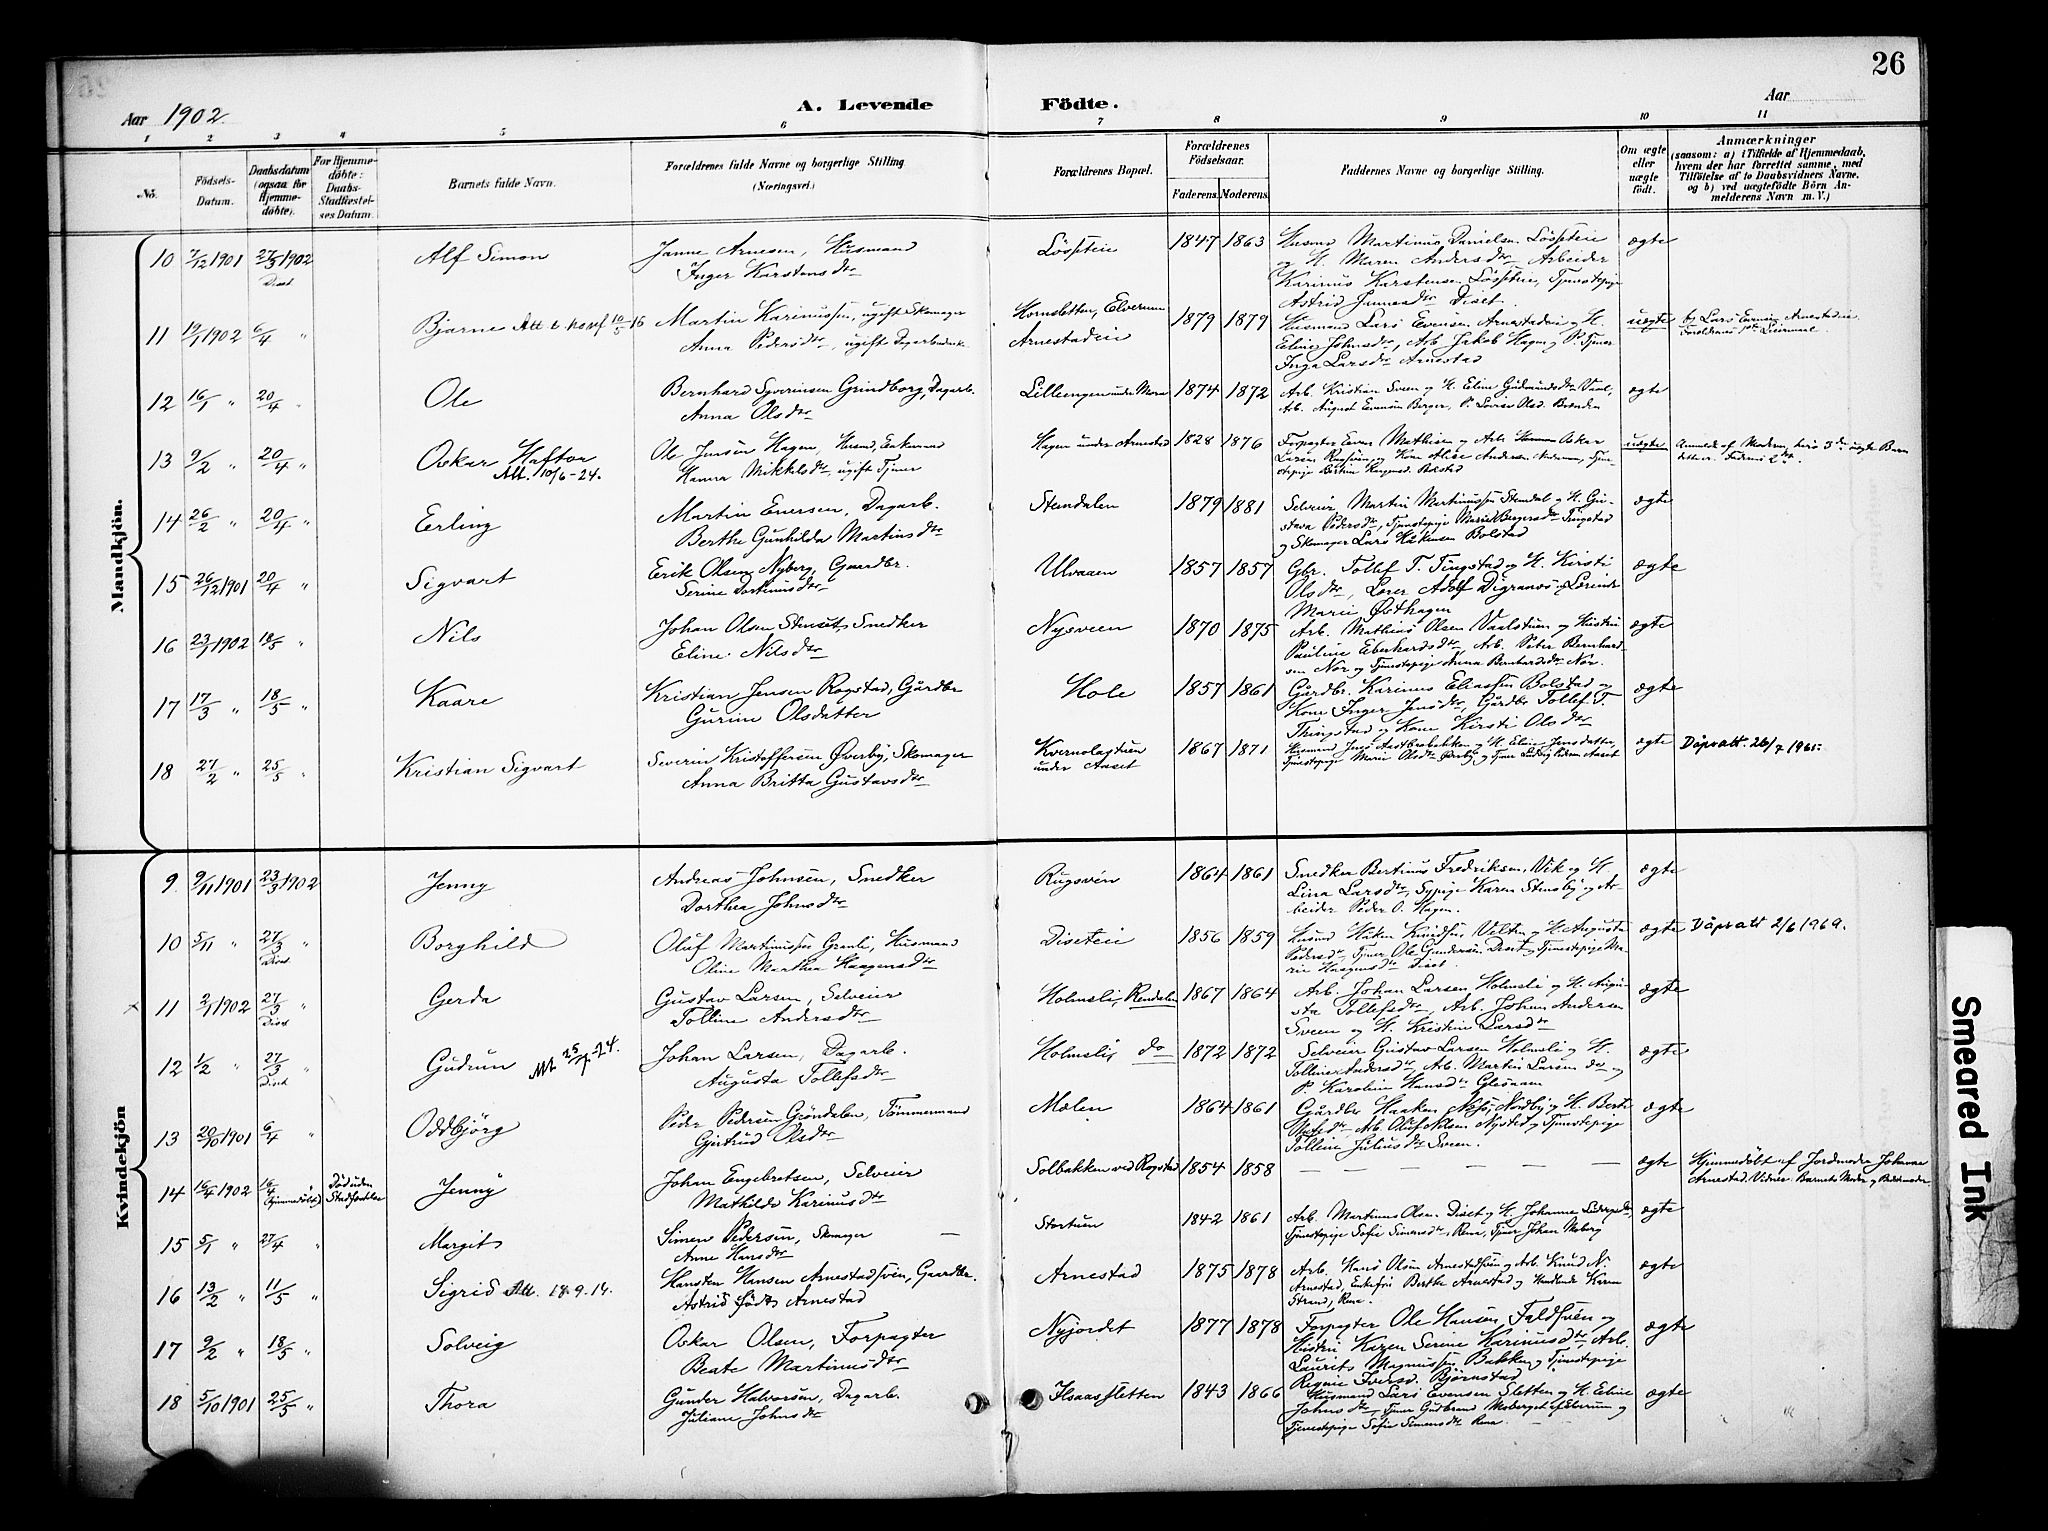 26
Aar 1902.
A. Levende Födte.
Aar
1 2 3 4 5 6 7 8 9 10 11
No.
Födsels-Datum.
Daabsdatum (ogsaa for Hjemmedöbte).
For Hjemmedöbte: Daabs-Stadfæstelses Datum.
Barnets fulde Navn.
Forældrenes fulde Navne og borgerlige Stilling (Næringsvei.)
Forældrenes Bopæl.
Forældrenes Födselsaar.
Faderens. Moderens.
Faddernes Navne og borgerlige Stilling.
Om ægte eller uægte födt.
Anmærkninger
(saasom: a) i Tilfælde af Hjemmedaab, hvem der har forrettet samme, med Tilföielse af to Daabsvidners Navne, og b) ved uægtefödte Börn Anmelderens Navn m. V.)
Mandkjön.
10 7/12 1901 27/3 1902 Diset Alf Simon Janne Arnesen, Husmand
Inger Karstensdtr
Lösseteie 1847 1863 Husmd Martinus Danielsen Lösseteie
og H. Maren Andersdtr Arbeider
Karinus Karstensen Lösseteie, Tjenestepige
Astrid Jannesdtr Diset. ægte
11 19/1 1902 6/4 " Bjarne Martin Karinussen, ugift Skomager
Anna Pedersdtr, ugift
Kornsletten, Elverum
Arnestadeie
1879 1879 Husmand Lars Evensen Arnestadeie og H.
Eline Johnsdtr, Arb. Jakob Hagen og P. Tjener
Inga Larsdtr Arnestad uægte
12 16/1 " 20/4 " Ole Bernhard Syverinsen Grindborg, Dagarb.
Anna Olsdtr
Lilleengen under Mora 1874 1872 Arb. Kristian Sveen og H. Eline Gudmundsdtr
Arb. August Evensen Berger, P. Lovise Olsd. ægte
13 9/2 " 20/4 " Oskar Haftor
Att. 10/6-24.
Ole Jensen Hagen, Husmd, Enkemand
Hanna Mikkelsdtr, ugift Tjener
Hagen under Arnestad 1828 1876 Forpagter Even Mathisen uægte
14 26/2 " 20/4 " Erling Martin Evensen, Dagarb.
Berthe Gunhilda Martinsdtr
Stendalen 1879 1881 Selveier Martin Martinussen Stendal og H. Gustava Pedersdtr, Tjenestepige Marie Bergersdtr Tingstad
og Skomager Lars Håkensen Bolstad ægte
15 26/12 1901 20/4 " Sigvart Erik Olsen Nyberg, Gaardbr.
Serine
Ulvaaen 1857 1857 Gbr. Tollef T. Tingstad og H. Kirsti
Olsdtr, Lærer Adolf Digranæs og Lærerinde
Marie Østhagen ægte
16 23/1 1902 18/5 " Nils Johan Olsen Stenset, Snedker
Eline Nilsdtr
Nysveen 1870 1875 Arb. Mathias Olsen og Hustru
Pauline Eberhardsdtr, Arb. Peter Bernhardsen Nor og Tjenestepige Anna Bernhardsdtr Nor. ægte
17 17/3 " 18/5 " Kaare Kristian Jensen Rogstad, Gårdbr
Gurine Olsdatter
Hole 1857 1861 Gårdbr. Karinus Eliassen Bolstad og
Kone Inger Jensdtr, Gårdbr Tollef T.
Thingstad og Kone Kirsti Olsdtr ægte
18 27/2 " 25/5 " Kristian Sigvart Severin Kristoffersen Øverby, Skomager
Anna Britta Gustavsdtr
Kvernolagstuen
under Aaset
1867 1871 ægte Dåpsatt. 26/7 1961.
Kvindekjön
9. 9/11 1901 23/3 1902 Jenny Andreas Johnsen, Snedker
Dorthea Johnsdtr
Rugsvén 1864 1861 Snedker Bertinus Fredriksen Wik og H.
Lina Larsdtr, Sypige Karen Stensby og Arbeider Peder O. Hagen. ægte
10 5/11 " 27/3 " Diset Borghild Oluf Martinussen Granli, Husmand
Oline Marthea Haagensdtr
Diseteie 1856 1859 Husmd Håken Knudsen og H. Augusta
Pedersdtr, Tjener Ole Gundersen Diset og Tjenestepige Marie Haagensdtr Diset. ægte Dåpsatt 2/6 1969.
11 2/1 1902 27/3 " Diset Gerda Gustav Larsen, Selveier
Tolline Andersdtr
Holmsli, Rendalen 1867 1864 Arb. Johan Larsen Holmsli og H. Augusta Tollefsdtr, Arb. Johan Andersen
Sveen og H. Kristine Larsdtr ægte
12 1/2 " 27/3 " Diset Gudrun Att 25/7-24. Johan Larsen, Dagarb.
Augusta Tollefsdtr
Holmsli, do 1872 1872 Selveier Gustav Larsen Holmsli og H.
Tolline Andersdtr, Arb. Martin Larsen do og
P. Karoline Hansdtr ægte
13 20/10 1901 6/4 " Oddbjörg Peder Pedersen Gröndalen, Tömmermand
Gjertrud Olsdtr
Mælen 1864 1861 Gårdbr Haaken Nordby og H. Berte
Arb. Oluf Nilsen Nysted og Tjenestepige
Tolline Juliusdtr Sveen. ægte
14 16/4 1902 16/4 (Hjemmedöbt) Död uden Stadfæstelse Jenny Johan Engebretsen, Selveier
Mathilde Karinusdtr
Solbakken ved Rogstad 1854 1858 — — — — — — ægte Hjemmedöbt af Jordmoder Johanne
Arnestad. Vidner: Barnets Moder og Bedstemoder.
15 5/1 " 27/4 " Margit Simen Pedersen, Skomager
Anne Hansdtr
Stortuen 1842 1861 Arb. Martinus Olsen Diset og H. Johanne
Tjenestepige Sofie Simensdtr, Rena, Tjener Johan Moberg ægte
16 13/2 " 11/5 " Sigrid Att. 18.9.14. Hansten Hansen Arnestadsvén, Gaardbr.
Astrid födt Arnestad
Arnestad 1875 1878 Arb. Hans Olsen Arnestadsvén og Arb. Knud N.
Arnestad, Enkefru Berthe Arnestad og Handlende Karen
Strand, Rena. ægte
17 9/2 " 18/5 " Solveig Oskar Olsen, Forpagter
Beate Martinusdtr
Nyjordet 1877 1878 Forpagter Ole Hansen Faldsvén og
Hustru Karen Serine Karinusdtr, Arb.
Laurits Magnussen Bakken og Tjenestepige
Regine Iversd. Bjørnstad ægte
18 5/10 1901 25/5 " Thora Gunder Halvorsen, Dagarb.
Juliane Johnsdtr
Ilsaassletten 1843 1866 Husmand Lars Evensen Sletten og H. Eline
Johnsdtr, Tjener Gudbrand Moberget af Elverum og
Tjenestepige Sofie Simensdtr Rena ægte
Smeared Ink